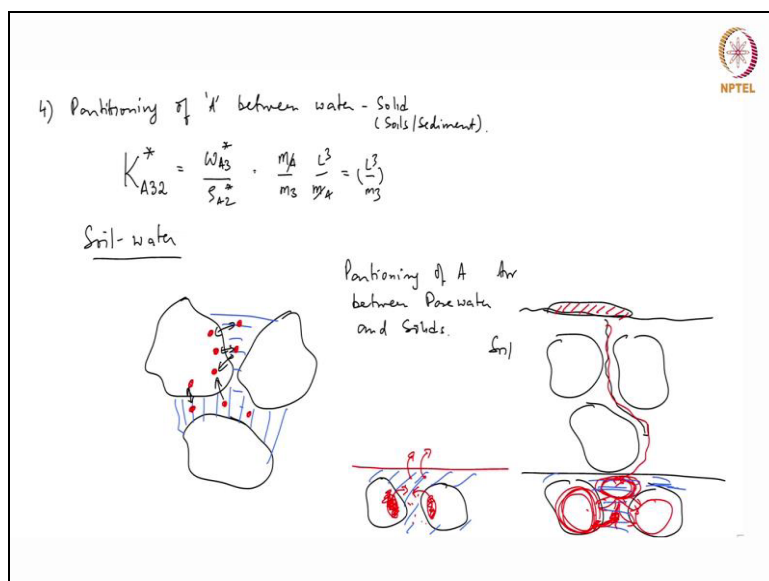 NPTEL
4) Partitioning of 'A' between water - Solid
(Soils/Sediment).
K*A32 = ωA3* / ρA2* = mA/m3 L³/mA = (L³/m3)
Soil-water
Partioning of A
between Porewater
and Solids.
Air
Soil